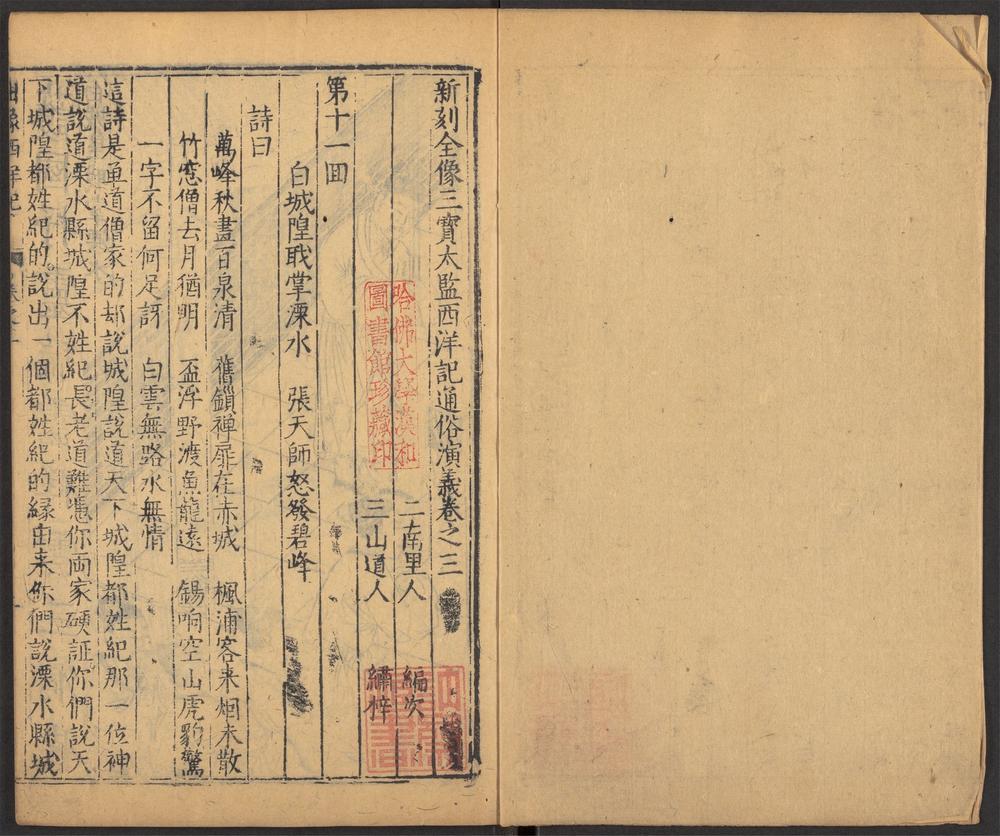 新刻全像三寶太監西洋記通俗演義卷之三
二南里人　編次
三山道人　繡梓
哈佛大學漢和
圖書館珍藏印
第十一回
白城隍戝掌溧水　張天師怒發碧峰
詩曰
萬峰秋盡百泉清　舊鎖禅扉在赤城　楓浦客来烟未散
竹窓僧去月猶明　盃浮野渡魚龍遠　錫响空山虎豹驚
一字不留何足訝　白雲無路水無情
這詩是単道僧家的却說城隍說道天下城隍都姓紀那一位神
道說道溧水縣城隍不姓紀長老道難憑你両家硬証你們說天
下城隍都姓紀的說出一個都姓紀的緣由来你們說溧水縣城